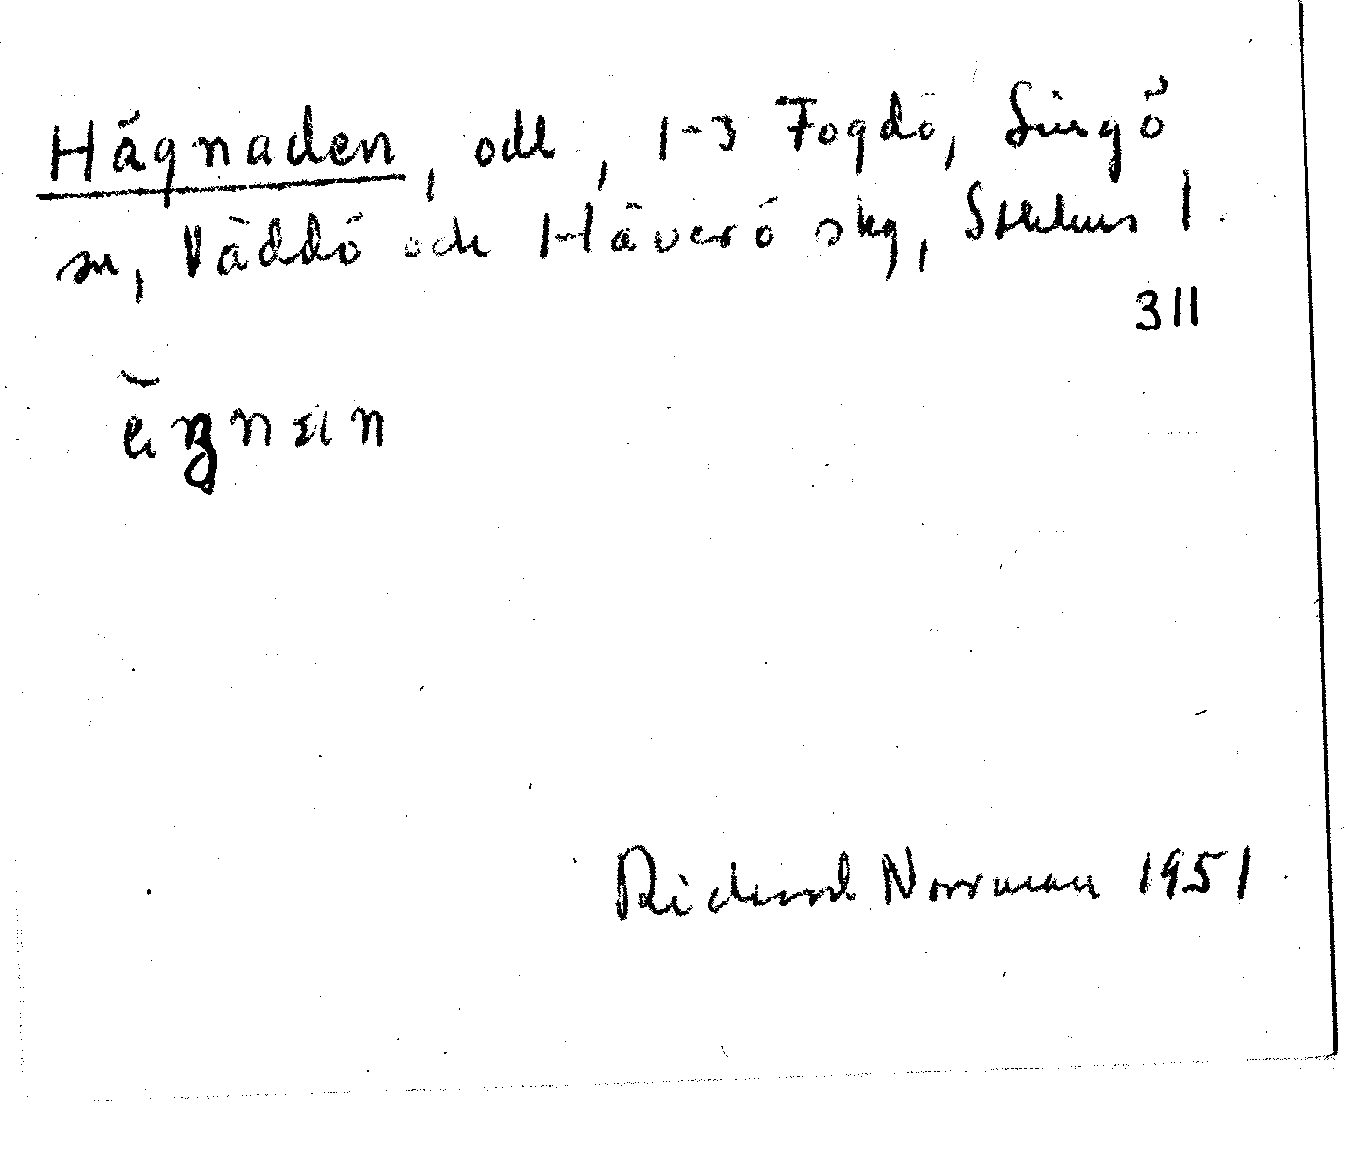 Hägnaden, odl, 1-3 Fogdö, Singö
sn, Väddö och Häverö skg, Sthlms l.
311
Richard Norrman 1951